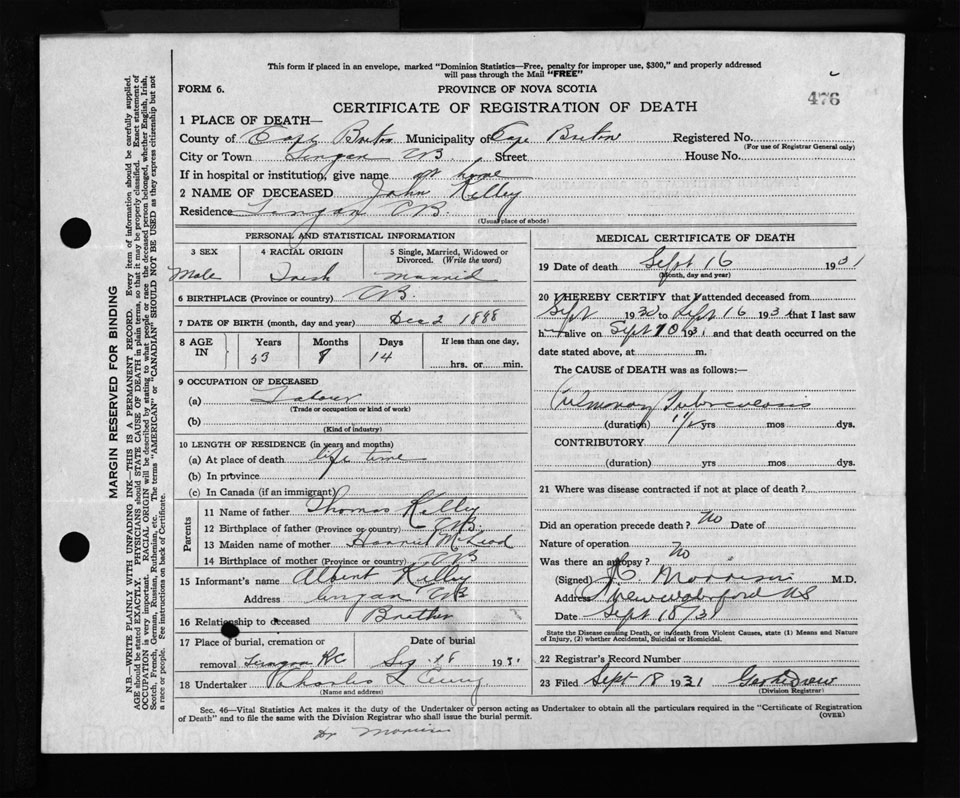 This form if placed in an envelope, marked "Dominion Statistics—Free, penalty for improper use, $300," and properly addressed
will pass through the Mail "FREE"
FORM 6.
PROVINCE OF NOVA SCOTIA
476
CERTIFICATE OF REGISTRATION OF DEATH
1 PLACE OF DEATH—
County of Cape Breton Municipality of Cape Breton Registered No.
(For use of Registrar General only)
City or Town Lingan CB. Street House No.
If in hospital or institution, give name at home
2 NAME OF DECEASED John Kelley
Residence Lingan CB.
(Usual place of abode)
PERSONAL AND STATISTICAL INFORMATION
3 SEX 4 RACIAL ORIGIN 5 Single, Married, Widowed or Divorced. (Write the word)
Male Irish Married
6 BIRTHPLACE (Province or country) CB.
7 DATE OF BIRTH (month, day and year) Dec 2 1888
8 AGE IN Years Months Days If less than one day,
53 8 14 hrs. or min.
9 OCCUPATION OF DECEASED
(a) Labour
(Trade or occupation or kind of work)
(b)
(Kind of industry)
10 LENGTH OF RESIDENCE (in years and months)
(a) At place of death life time
(b) In province
(c) In Canada (if an immigrant)
Parents
11 Name of father Thomas Kelley
12 Birthplace of father (Province or country) CB.
13 Maiden name of mother Harriet McLeod
14 Birthplace of mother (Province or country) CB
15 Informant's name Albert Kelley
Address Lingan CB
16 Relationship to deceased Brother
17 Place of burial, cremation or Date of burial
removal Lingan RC Sep. 18 1931.
18 Undertaker Charles L
(Name and address)
MEDICAL CERTIFICATE OF DEATH
19 Date of death Sept 16 1931
(Month, day and year)
20 I HEREBY CERTIFY that I attended deceased from
Sept 1930 to Sept 16 1931 that I last saw
h alive on Sept 10 1931 and that death occurred on the
date stated above, at m.
The CAUSE of DEATH was as follows:—
Pulmonary Tuberculosis
(duration) 1½ yrs mos dys.
CONTRIBUTORY
(duration) yrs mos dys.
21 Where was disease contracted if not at place of death?
Did an operation precede death? No Date of
Nature of operation
Was there an autopsy? No
(Signed) Morrison M.D.
Address New Waterford NS
Date Sept 18/31
State the Disease causing Death, or in death from Violent Causes, state (1) Means and Nature
of Injury, (2) whether Accidental, Suicidal or Homicidal.
22 Registrar's Record Number
23 Filed Sept 18 1931
(Division Registrar)
Sec. 46—Vital Statistics Act makes it the duty of the Undertaker or person acting as Undertaker to obtain all the particulars required in the "Certificate of Registration
of Death" and to file the same with the Division Registrar who shall issue the burial permit.
(OVER)
Dr Morrison
MARGIN RESERVED FOR BINDING
N.B.—WRITE PLAINLY WITH UNFADING INK—THIS IS A PERMANENT RECORD. Every item of information should be carefully supplied.
AGE should be stated EXACTLY. PHYSICIANS should STATE CAUSE OF DEATH in plain terms, so that it may be properly classified. Exact statement of
OCCUPATION is very important. RACIAL ORIGIN will be described by stating to what people or race the deceased person belonged, whether English, Irish,
Scotch, French, German, Russian, Ruthenian, etc. The terms "AMERICAN" or "CANADIAN" SHOULD NOT BE USED as they express citizenship but not
a race or people. See instructions on back of Certificate.